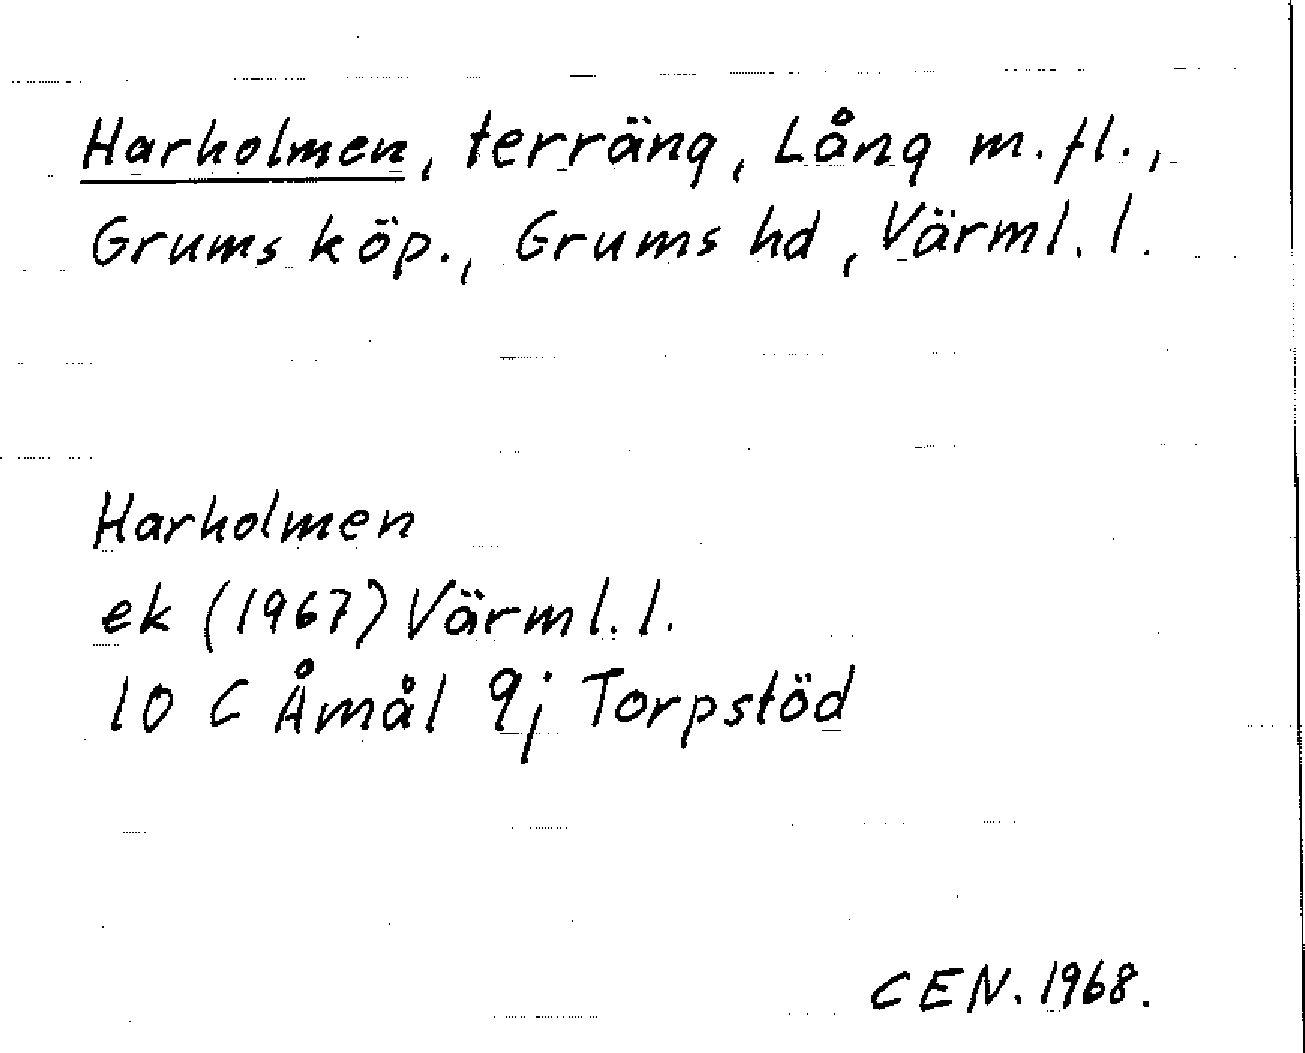 Harholmen, terräng, Lång m.fl.,
Grums köp., Grums hd, Värml. l.
Harholmen
ek (1967) Värml. l.
10 C Åmål 9j Torpstöd
CEN. 1968.